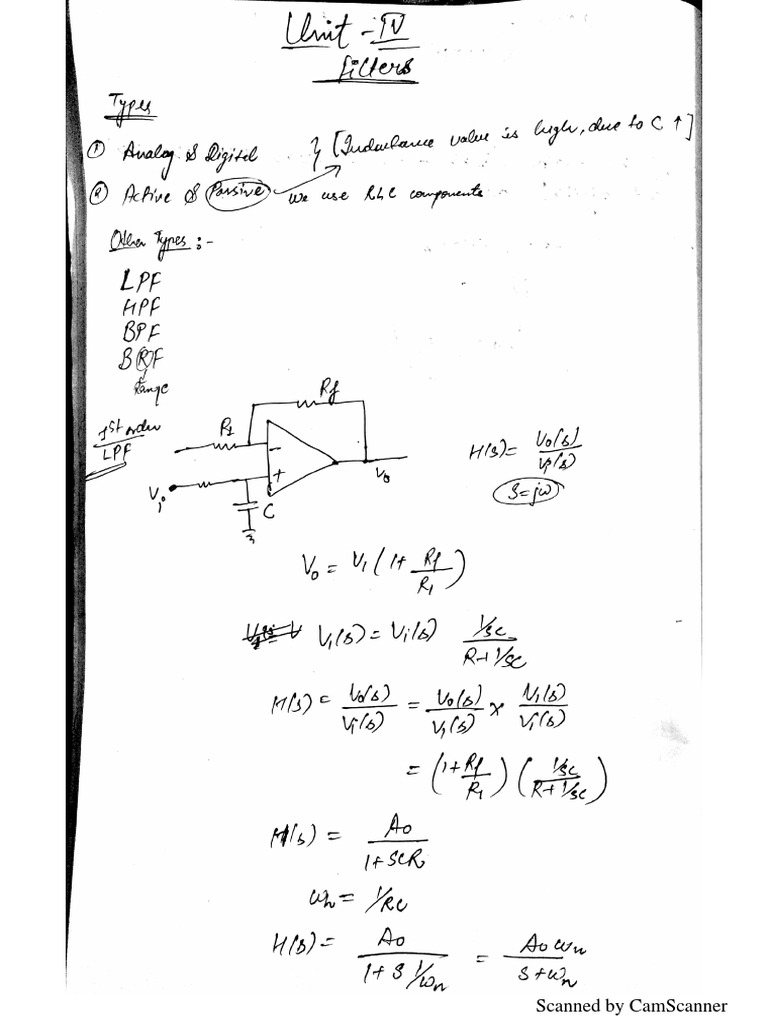 Unit - IV
filters
Types
① Analog & Digital } [Inductance value is high, due to C ↑]
② Active & Passive we use RLC components
Other Types :-
LPF
HPF
BPF
BRF
Range
1st order
LPF
R1
Rf
-
+
Vi
C
Vo
H(s) = Vo(s)/Vi(s)
S = jω
Vo = V1 (1 + Rf/R1)
V1(s) = Vi(s) (1/sC)/(R+1/sC)
H(s) = Vo(s)/Vi(s) = Vo(s)/V1(s) × V1(s)/Vi(s)
= (1 + Rf/R1) ((1/sC)/(R+1/sC))
H(s) = Ao/(1+SCR)
ωh = 1/RC
H(s) = Ao/(1+S 1/ωn) = Aoωn/(S+ωn)
Scanned by CamScanner